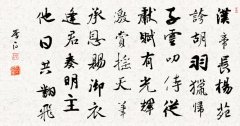 漢帝長楊苑
誇胡羽獵歸
子雲叨侍從
獻賦有光輝
激賞搖天筆
承恩賜御衣
逢君奏明主
他日共翻飛